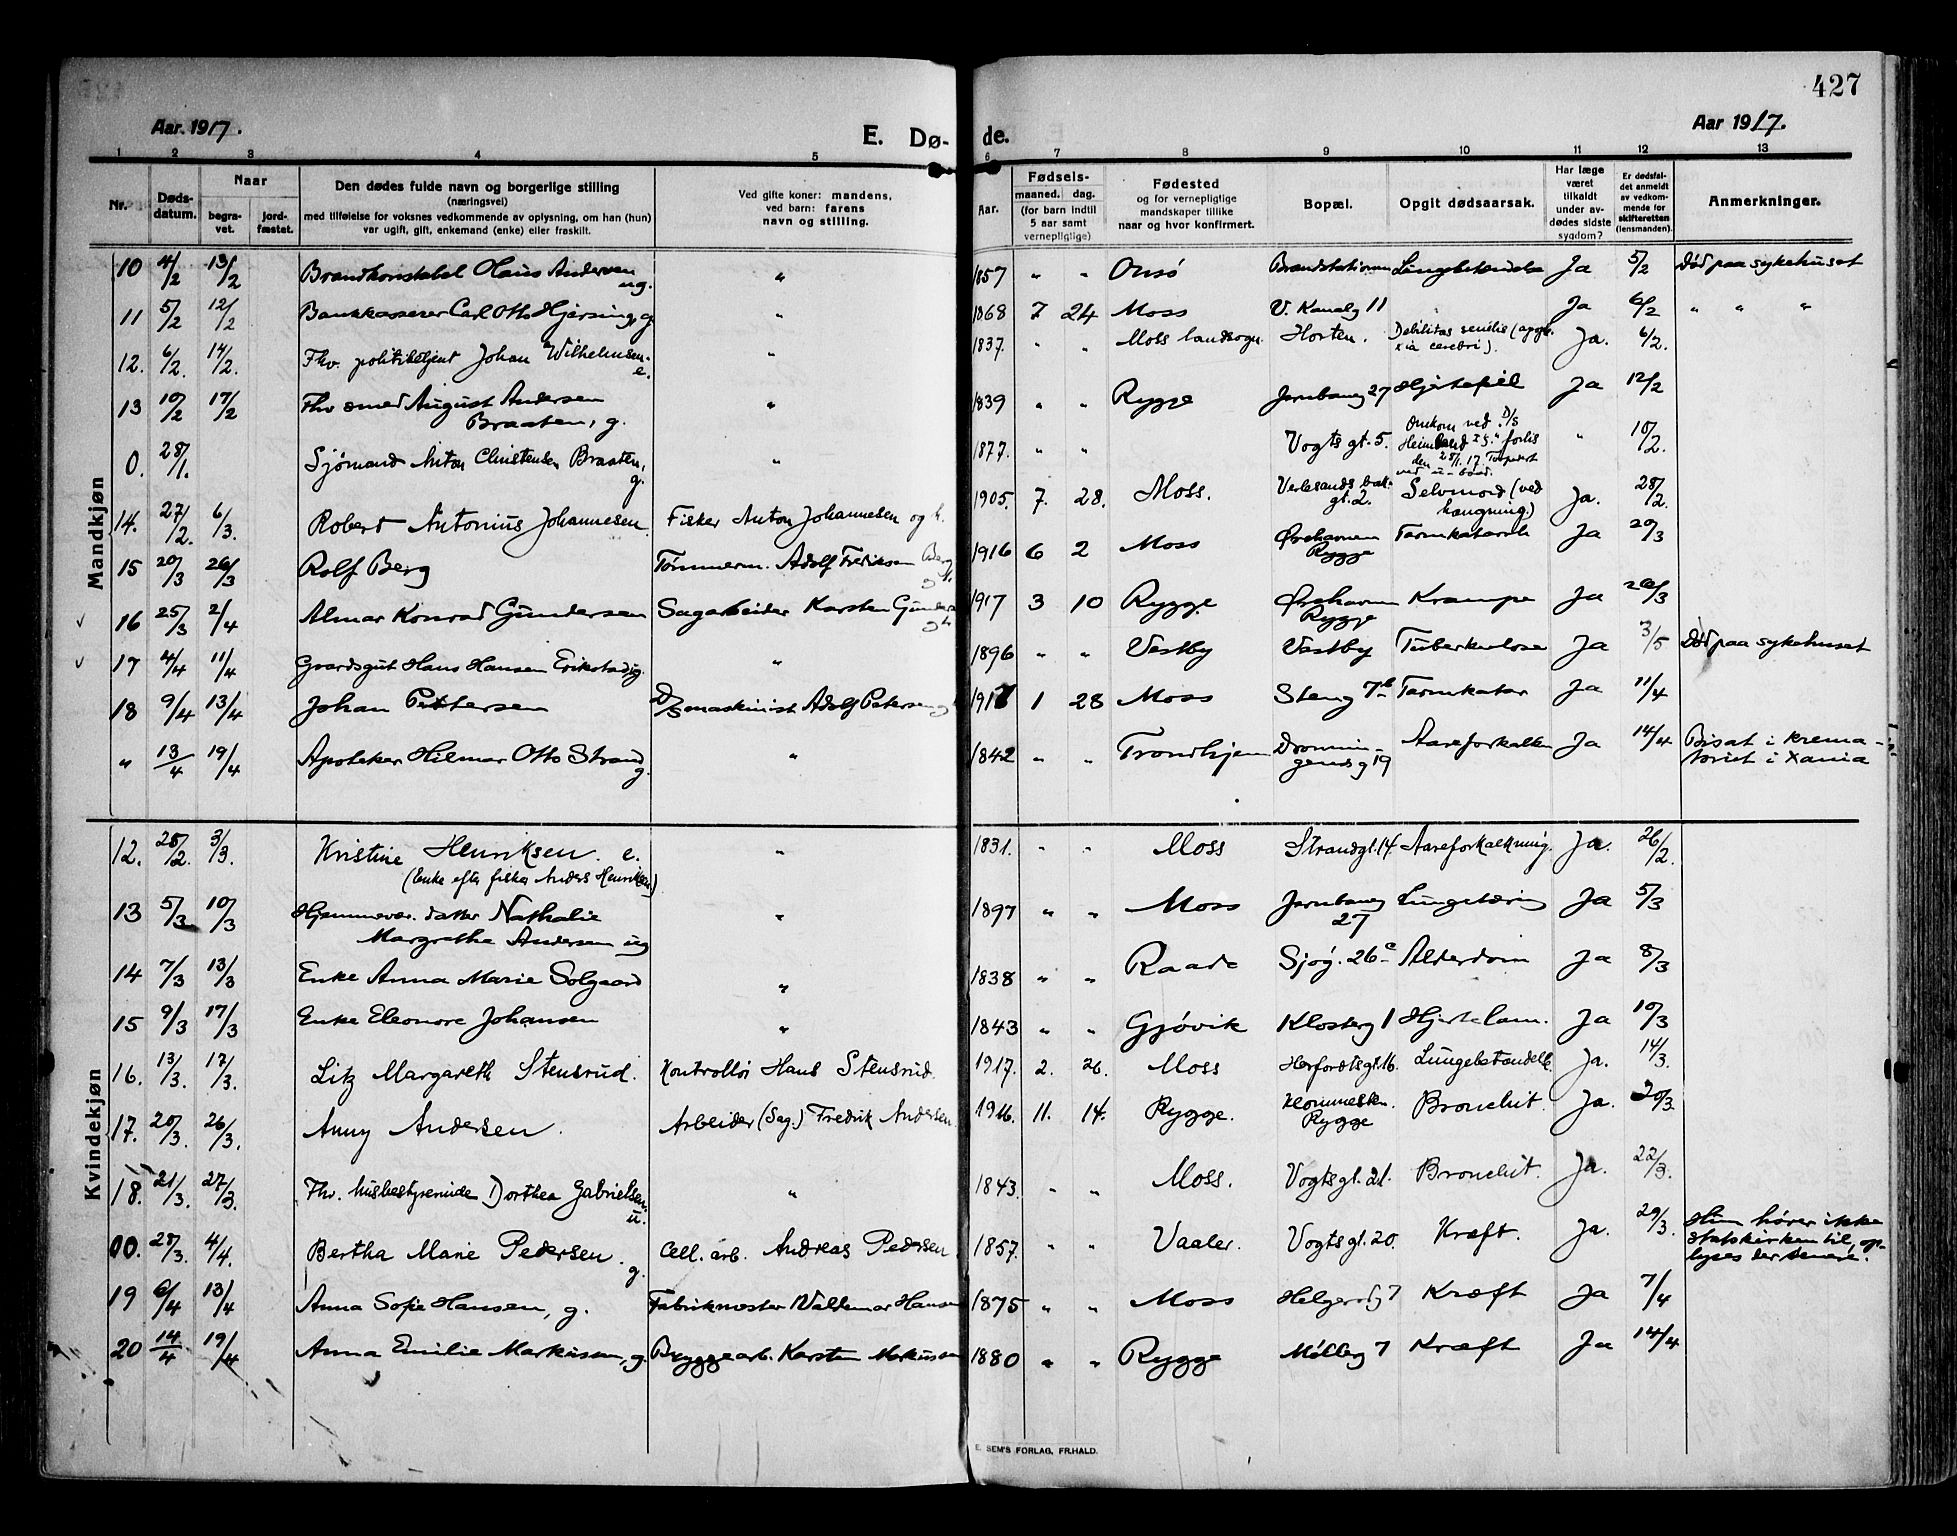 427
Aar. 1917.
E. Dø-
de.
Aar 1917.
1 2 3 4 5 6 7 8 9 10 11 12 13
Nr.
Døds-
datum.
Naar
begra-
vet.
jord-
fæstet.
Den dødes fulde navn og borgerlige stilling
(næringsvei)
med tilføielse for voksnes vedkommende av oplysning, om han (hun)
var ugift, gift, enkemand (enke) eller fraskilt.
Ved gifte koner: mandens,
ved barn: farens
navn og stilling.
Aar.
Fødsels-
maaned. dag.
(for barn indtil
5 aar samt
vernepligtige)
Fødested
og for vernepligtige
mandskaper tillike
naar og hvor konfirmert.
Bopæl.
Opgit dødsaarsak.
Har læge
været
tilkaldt
under av-
dødes sidste
sygdom?
Er dødsfal-
det anmeldt
av vedkom-
mende for
skifteretten
(lensmanden).
Anmerkninger.
Mandkjøn
10 4/2 13/2 Brandkonstabel Hans Andersen ug. " 1857 " " Onsø Brandstationen Lungebetendelse Ja 5/2 Død paa sykehuset
11 5/2 12/2 Bankkasserer Carl Otto Hjersing, g " 1868 7 24 Moss V. Kanalg 11 Ja 6/2 " " "
12. 6/2. 14/2. Fhv. politibetjent Johan Wilhelmsen e. " 1837. " " Moss landsogn. Horten. Debilitas senilis (apople-
xia cerebri). Ja. 6/2.
13 10/2 17/2 Fhv smed August Andersen
Braaten, g. " 1839 " " Rygge Jernbaneg 27 Hjertefeil Ja 12/2
0. 28/1. Sjømand Anton Christensen Braaten,
g. " 1877. " " Vogts gt. 5. Omkom ved D/S
forlis
den 28/1. 17. Torpedert
ved u-baad. " 10/2.
14. 27/2. 6/3. Robert Antonius Johannesen. Fisker Anton Johannesen og h. 1905. 7. 28. Moss. Verlesands bak-
gt. 2. Selvmord (ved
hængning.) Ja. 28/2.
15 20/3 26/3 Rolf Berg Tømmerm. Adolf Fredriksen Berg
1916 6 2 Moss Ørehavnen
Rygge Tarmkatarrh Ja 20/3
16 25/3 2/4 Almar Konrad Gundersen Sagarbeider Karsten 1917 3 10 Rygge Ørehavnen
Rygge Krampe Ja 26/3
17 4/4 11/4 Gaardsgut Hans Hansen Erikstad ug. " 1896 " " Vestby Vestby Tuberkulose Ja 3/5 Død paa sykehuset
18 9/4 13/4 Johan Pettersen D/S maskinist Adolf Petersen 1917 1 28 Moss Steng 7b Tarmkatar Ja 11/4
" 13/4 19/4 Apoteker Hilmar Otto Strand
g. " 1842 " " Trondhjem Dronnin-
gensg 19 Aareforkalkn Ja 14/4 Bisat i krema-
toriet i Xania
Kvindekjøn
12. 25/2. 3/3. Kristine Henriksen. e.
(Enke efter fisker Anders Henriksen) " 1831. " " Moss Strandgt. 14. Aareforkalkning. Ja. 26/2.
13 5/3 10/3 Hjemmevær. datter Nathalie
Margrethe Andersen ug " 1897 " " Moss Jernbaneg
27 Lungetæring Ja 5/3
14 7/3 13/3 Enke Anna Marie Solgaard " 1838 " " Raade Sjøg. 26c Alderdom Ja 8/3
15 9/3 17/3 Enke Eleonore Johansen " 1843 " " Gjøvik Klosterg 1 Hjertelam. Ja 10/3
16. 13/3. 17/3. Litz Margareth Stensrud. Kontrollør Hans Stensrud. 1917. 2. 26. Moss Herfordtsgt. 16. Ja. 14/3.
17. 20/3. 26/3. Anny Andersen. Arbeider (Sag.) Fredrik Andersen. 1916. 11. 14. Rygge.
Rygge Bronchit. Ja. 20/3.
18. 21/3. 27/3. Fhv. husbestyrerinde Dorthea Gabrielsen.
u. " 1843. " " Moss. Vogtsgt. 21. Bronchit. Ja. 22/3.
00. 28/3. 4/4. Bertha Marie Pedersen.
g. Cell. arb. Andreas Pedersen 1857. " " Vaaler. Vogtsgt. 20. Kræft. Ja. 29/3. Hun hører ikke
statskirken til, op-
lyses der senere.
19 6/4 13/4 Anna Sofie Hansen, g. Fabrikmester Waldemar Hansen 1875 " " Moss Helgerødg 7 Kræft Ja 7/4
20 14/4 19/4 Anna Emilie Markussen, g. Bryggearb. Karsten Markussen 1880 " " Rygge Mølleg 7 Kræft Ja 14/4
E. SEM'S FORLAG, FR.HALD.